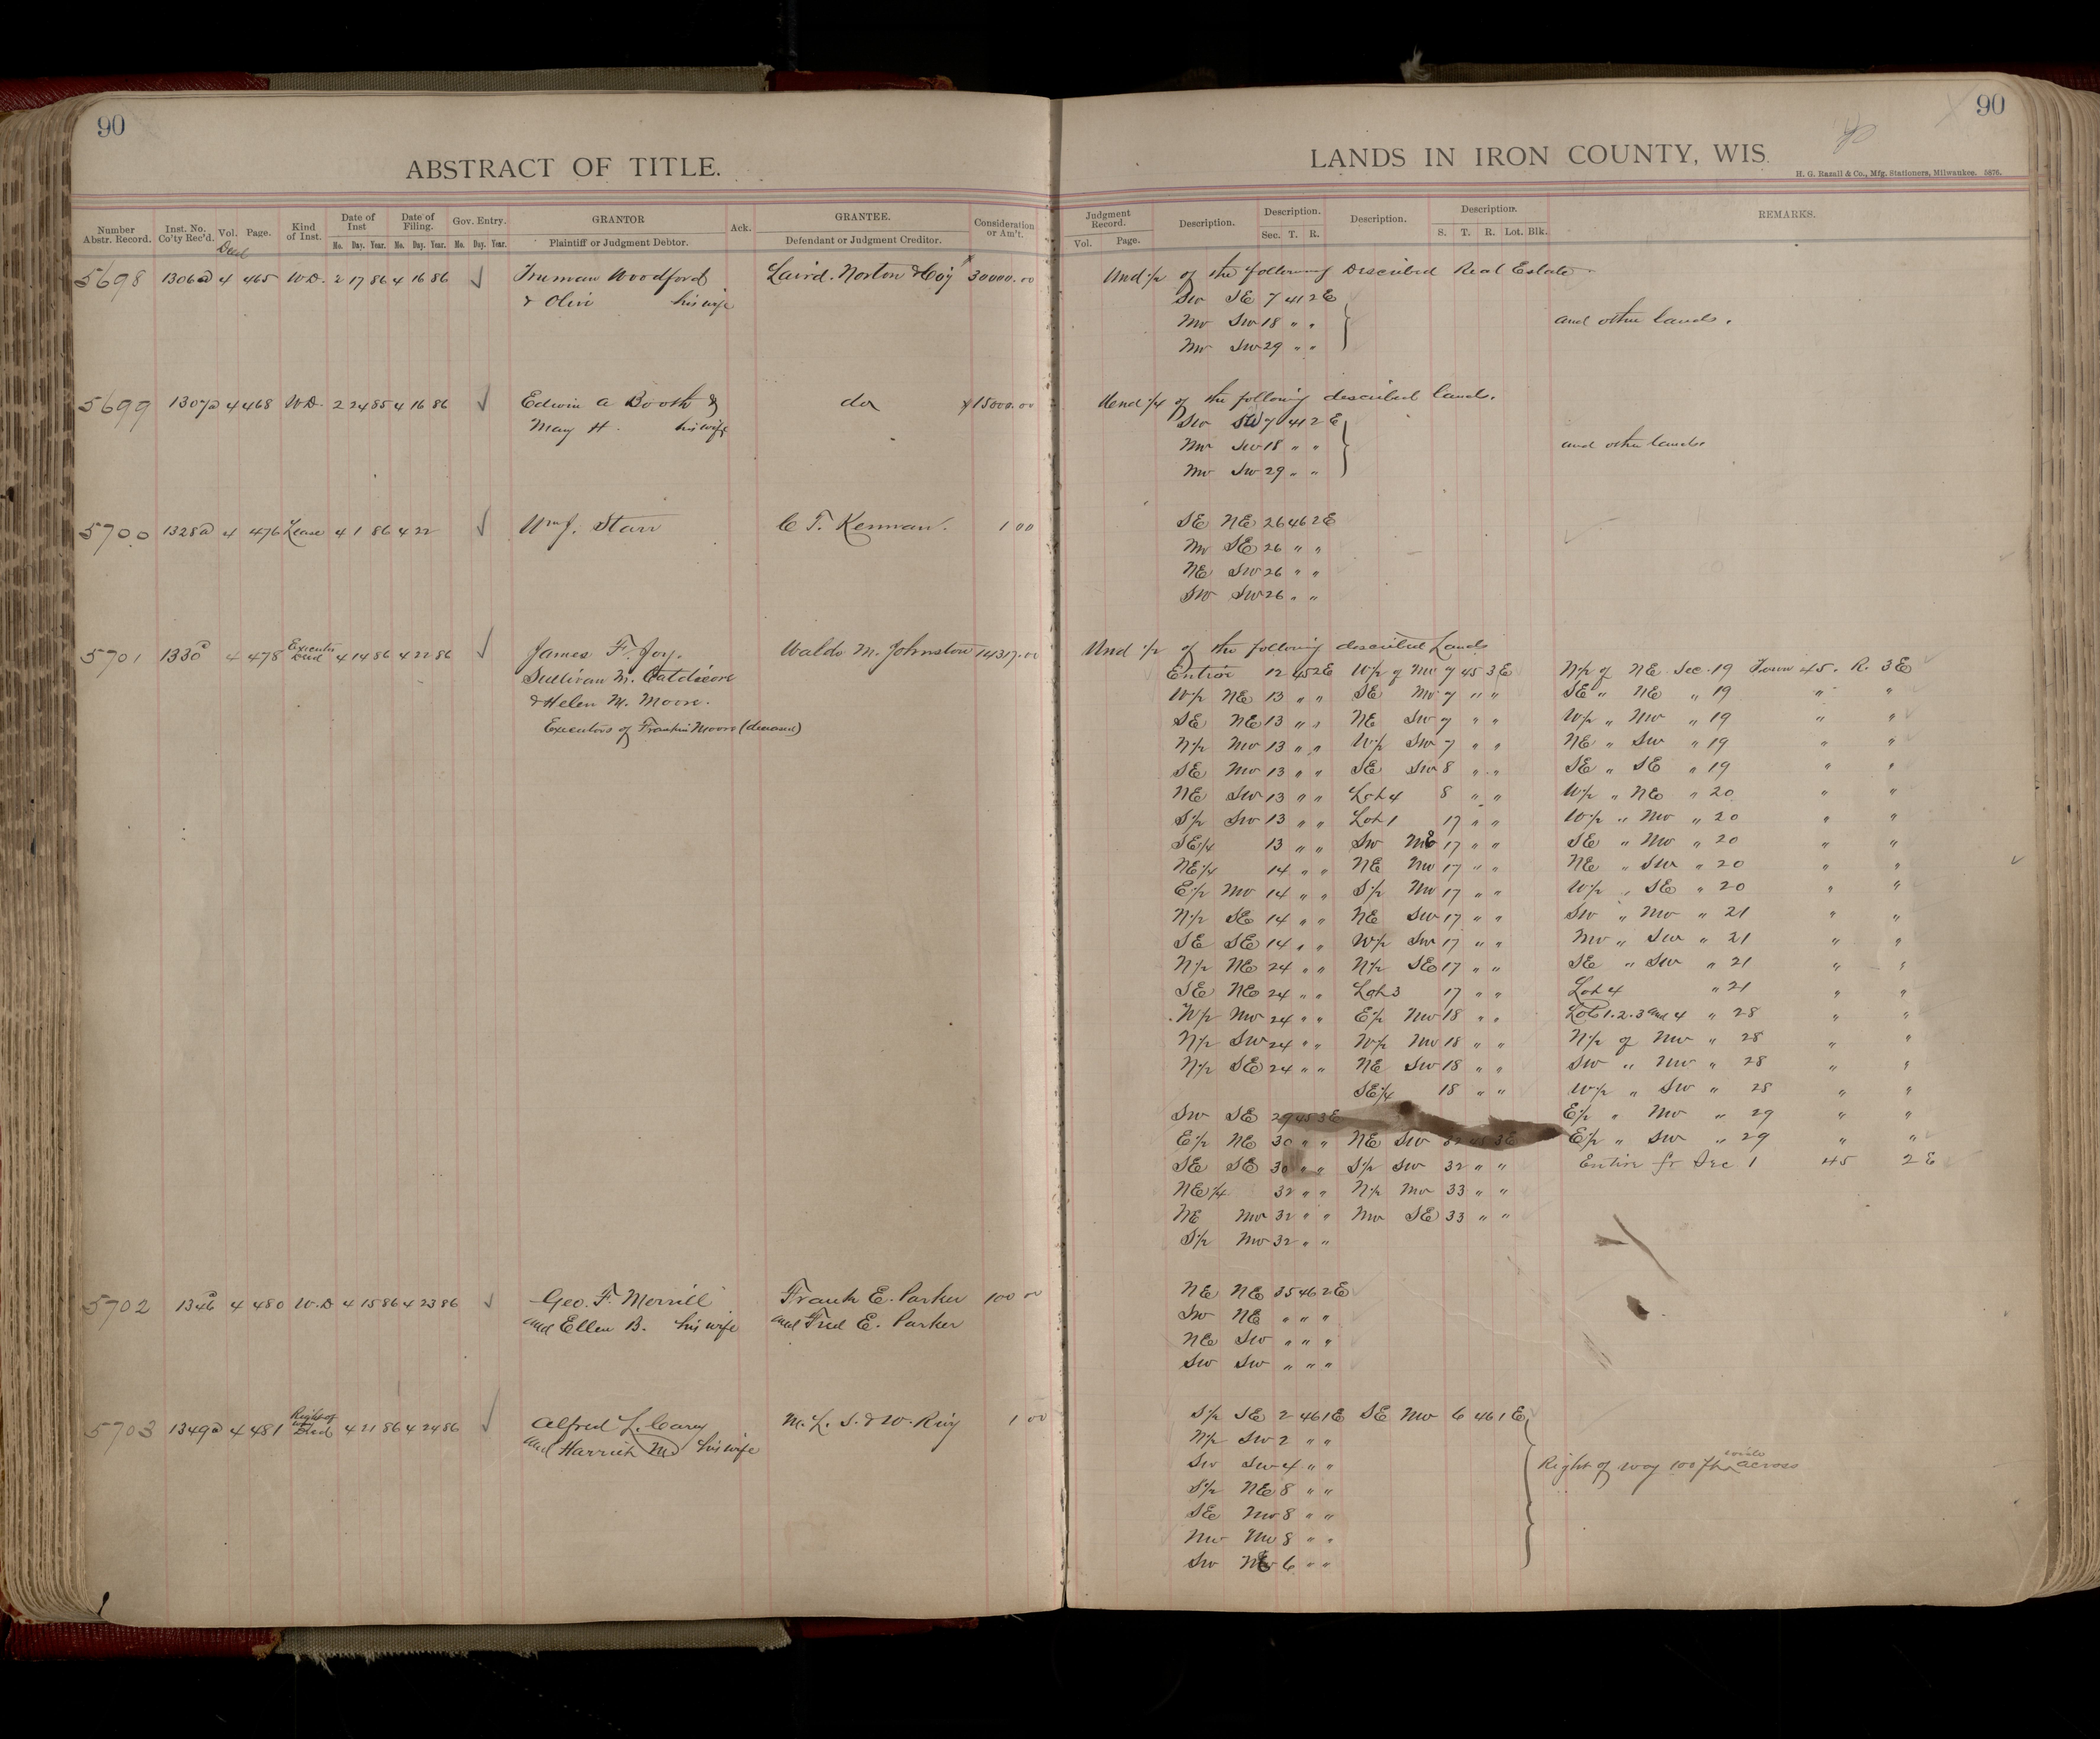 90
ABSTRACT OF TITLE.
Number Abstr. Record. Inst. No. Co'ty Rec'd. Vol. Page. Kind of Inst. Date of Inst Date of Filing. Gov. Entry. GRANTOR Ack. GRANTEE. Consideration or Am't.
Deed Mo. Day. Year. Mo. Day. Year. Mo. Day. Year. Plaintiff or Judgment Debtor. Defendant or Judgment Creditor.
5698 1306a 4 465 W.D. 2 17 86 4 16 86 √ Truman Woodford Laird. Norton & Coy 30000.00
& Olive his wife
5699 1307a 4 468 W.D. 2 24 85 4 16 86 √ Edwin A Booth & do 15000.00
May H. his wife
5700 1328a 4 476 Lease 4 1 86 4 22 √ Wm J. Starr C T. Kennan. 1 00
5701 1330a 4 478 Executors Deed 4 14 86 4 22 86 √ James F. Joy. Waldo M. Johnston 14317.00
Sullivan M.
& Helen M. Moore.
Executors of Franklin Moore (deceased)
5702 1346a 4 480 W.D 4 15 86 4 23 86 √ Geo. F. Morrill Frank E. Parker 100 00
and Ellen B. his wife and Fred E. Parker
5703 1349a 4 481 Right of way Deed 4 21 86 4 24 86 √ Alfred L. Cary M. L. S. & W. Ry 1 00
and Harriet M his wife
90
LANDS IN IRON COUNTY, WIS.
H. G. Razall & Co., Mfg. Stationers, Milwaukee. 5876.
Judgment Record. Description. Description. Description. Description. REMARKS.
Vol. Page. Sec. T. R. S. T. R. Lot. Blk.
Und 1/2 of the following Described Real Estate
SW SE 7 41 2E
NW SW 18 " " and other lands.
NW SW 29 " "
Und 1/4 of the following described lands.
SW SW 7 41 2E
NW SW 18 " " and other lands.
NW SW 29 " "
SE NE 26 46 2E
NW SE 26 " "
NE SW 26 " "
SW SW 26 " "
Und 1/2 of the following described Lands
Entire 12 45 2E W1/2 of NW 7 45 3E N1/2 of NE Sec. 19 Town 45. R. 3E
W1/2 NE 13 " " SE NW 7 " " SE " NE " 19 " "
SE NE 13 " " NE SW 7 " " W1/2 " NW " 19 " "
N1/2 NW 13 " " W1/2 SW 7 " " NE " SW " 19 " "
SE NW 13 " " SE SW 8 " " SE " SE " 19 " "
NE SW 13 " " Lot 4 8 " " W1/2 " NE " 20 " "
S1/2 SW 13 " " Lot 1 17 " " W1/2 " NW " 20 " "
SE1/4 13 " " SW NE 17 " " SE " NW " 20 " "
NE1/4 14 " " NE NW 17 " " NE " SW " 20 " "
E1/2 NW 14 " " S1/2 NW 17 " " W1/2 " SE " 20 " "
N1/2 SE 14 " " NE SW 17 " " SW " NW " 21 " "
SE SE 14 " " W1/2 SW 17 " " NW " SW " 21 " "
N1/2 NE 24 " " N1/2 SE 17 " " SE " SW " 21 " "
SE NE 24 " " Lot 3 17 " " Lot 4 " 21 " "
W1/2 NW 24 " " E1/2 NW 18 " " Lots 1. 2. 3 and 4 " 28 " "
N1/2 SW 24 " " W1/2 NW 18 " " N1/2 of NW " 28 " "
N1/2 SE 24 " " NE SW 18 " " SW " NW " 28 " "
SE1/4 18 " " W1/2 " SW " 28 " "
SW SE 29 45 3E E1/2 " NW " 29 " "
E1/2 NE 30 " " NE SW 32 45 3E E1/2 " SW " 29 " "
SE SE 30 " " S1/2 SW 32 " " Entire fr Sec 1 45 2E
NE1/4 32 " " N1/2 NW 33 " "
NE NW 32 " " NW SE 33 " "
S1/2 NW 32 " "
NE NE 35 46 2E
SW NE " " "
NE SW " " "
SW SW " " "
S1/2 SE 2 46 1E SE NW 6 46 1E
N1/2 SW 2 " "
SW SW 4 " " Right of way 100 ft wide across
S1/2 NE 8 " "
SE NW 8 " "
NW NW 8 " "
SW NE 6 " "